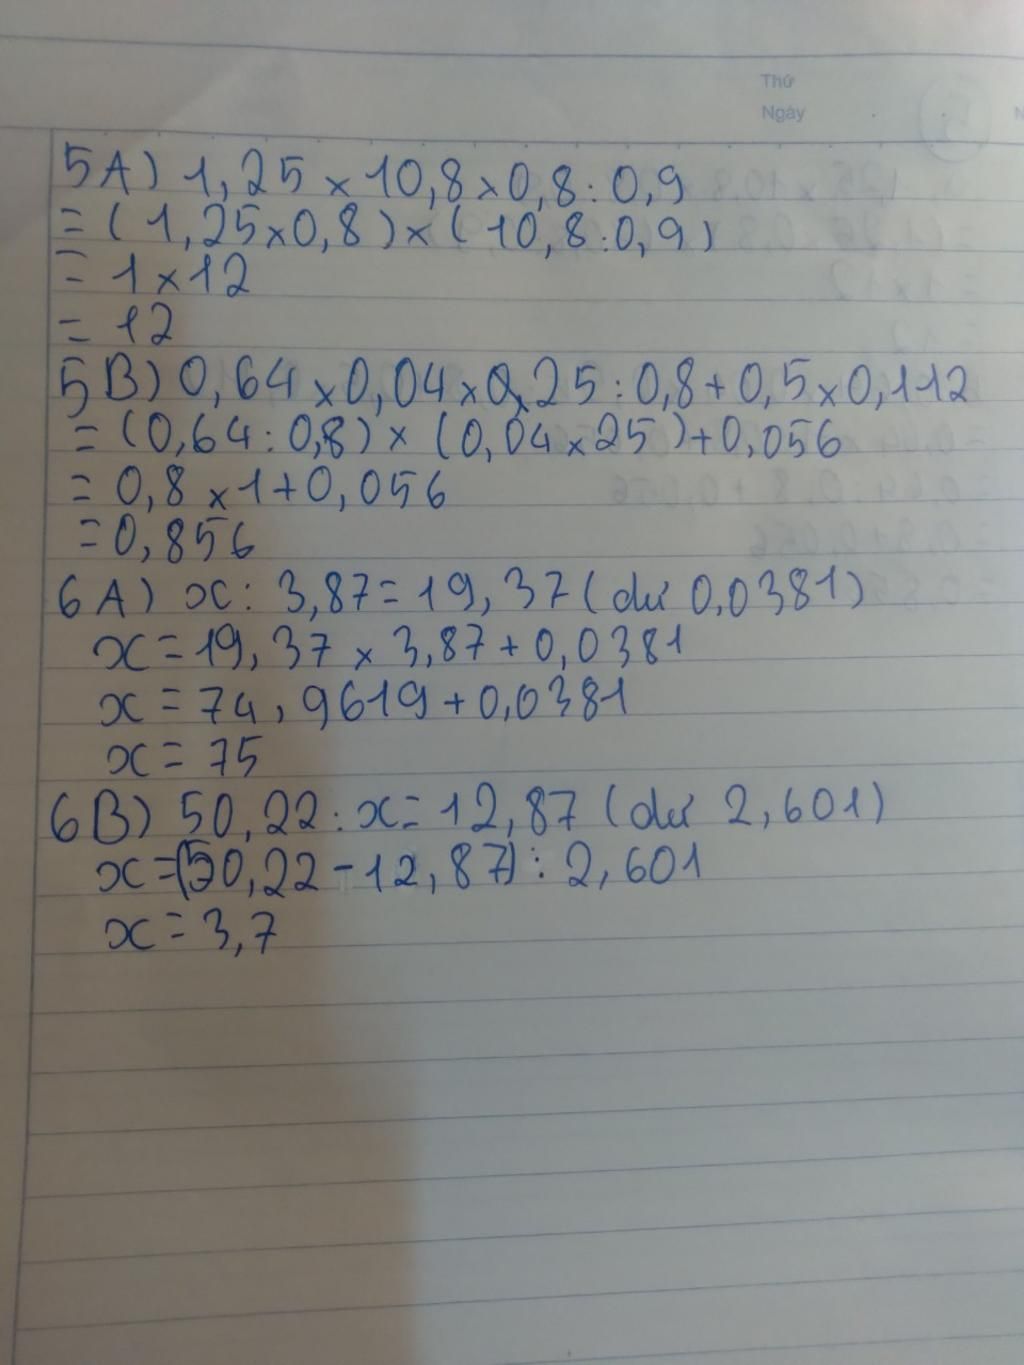 Thứ
Ngày
5A) 1,25 × 10,8 × 0,8 : 0,9
= (1,25 × 0,8) × (10,8 : 0,9)
= 1 × 12
= 12
5B) 0,64 × 0,04 × 0,25 : 0,8 + 0,5 × 0,112
= (0,64 : 0,8) × (0,04 × 25) + 0,056
= 0,8 × 1 + 0,056
= 0,856
6A) x : 3,87 = 19,37 (dư 0,0381)
x = 19,37 × 3,87 + 0,0381
x = 74,9619 + 0,0381
x = 75
6B) 50,22 : x = 12,87 (dư 2,601)
x = (50,22 - 12,87) : 2,601
x = 3,7